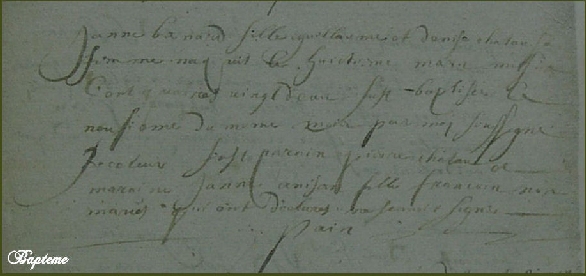 Janne benard fille guillaume et denise chalau sa
femme naquit le huictieme mars mil six
Cent quatres vingt deux fust baptisee le
neufieme du mesme mois par moy soussigné
fust parain pierre chalau et
maraine Janne fille francois non
mariés qui ont declares ne scavoir signer
Pain
Bapteme